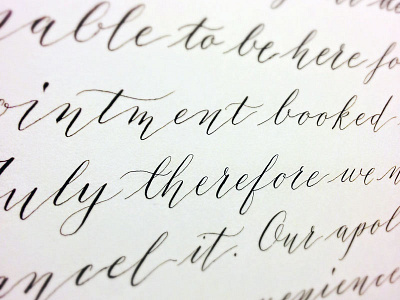 able to be here fo
ointment booked
July therefore we n
ancel it. Our apol
venience